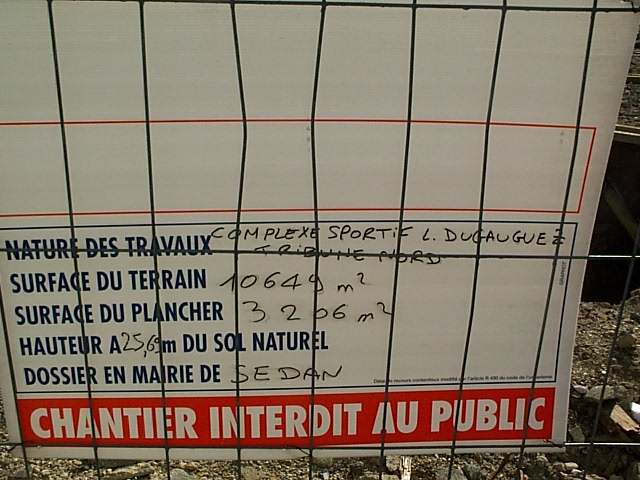 NATURE DES TRAVAUX COMPLEXE SPORTIF L. DUGAUGUEZ
TRIBUNE NORD
SURFACE DU TERRAIN 10649 m²
SURFACE DU PLANCHER 3206 m²
HAUTEUR A 25,69m DU SOL NATUREL
DOSSIER EN MAIRIE DE SEDAN
Délai de recours contentieux modifié par l'article R 490 du code de l'urbanisme
CHANTIER INTERDIT AU PUBLIC